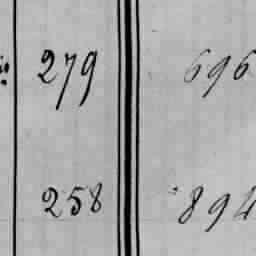 279 696
258 894